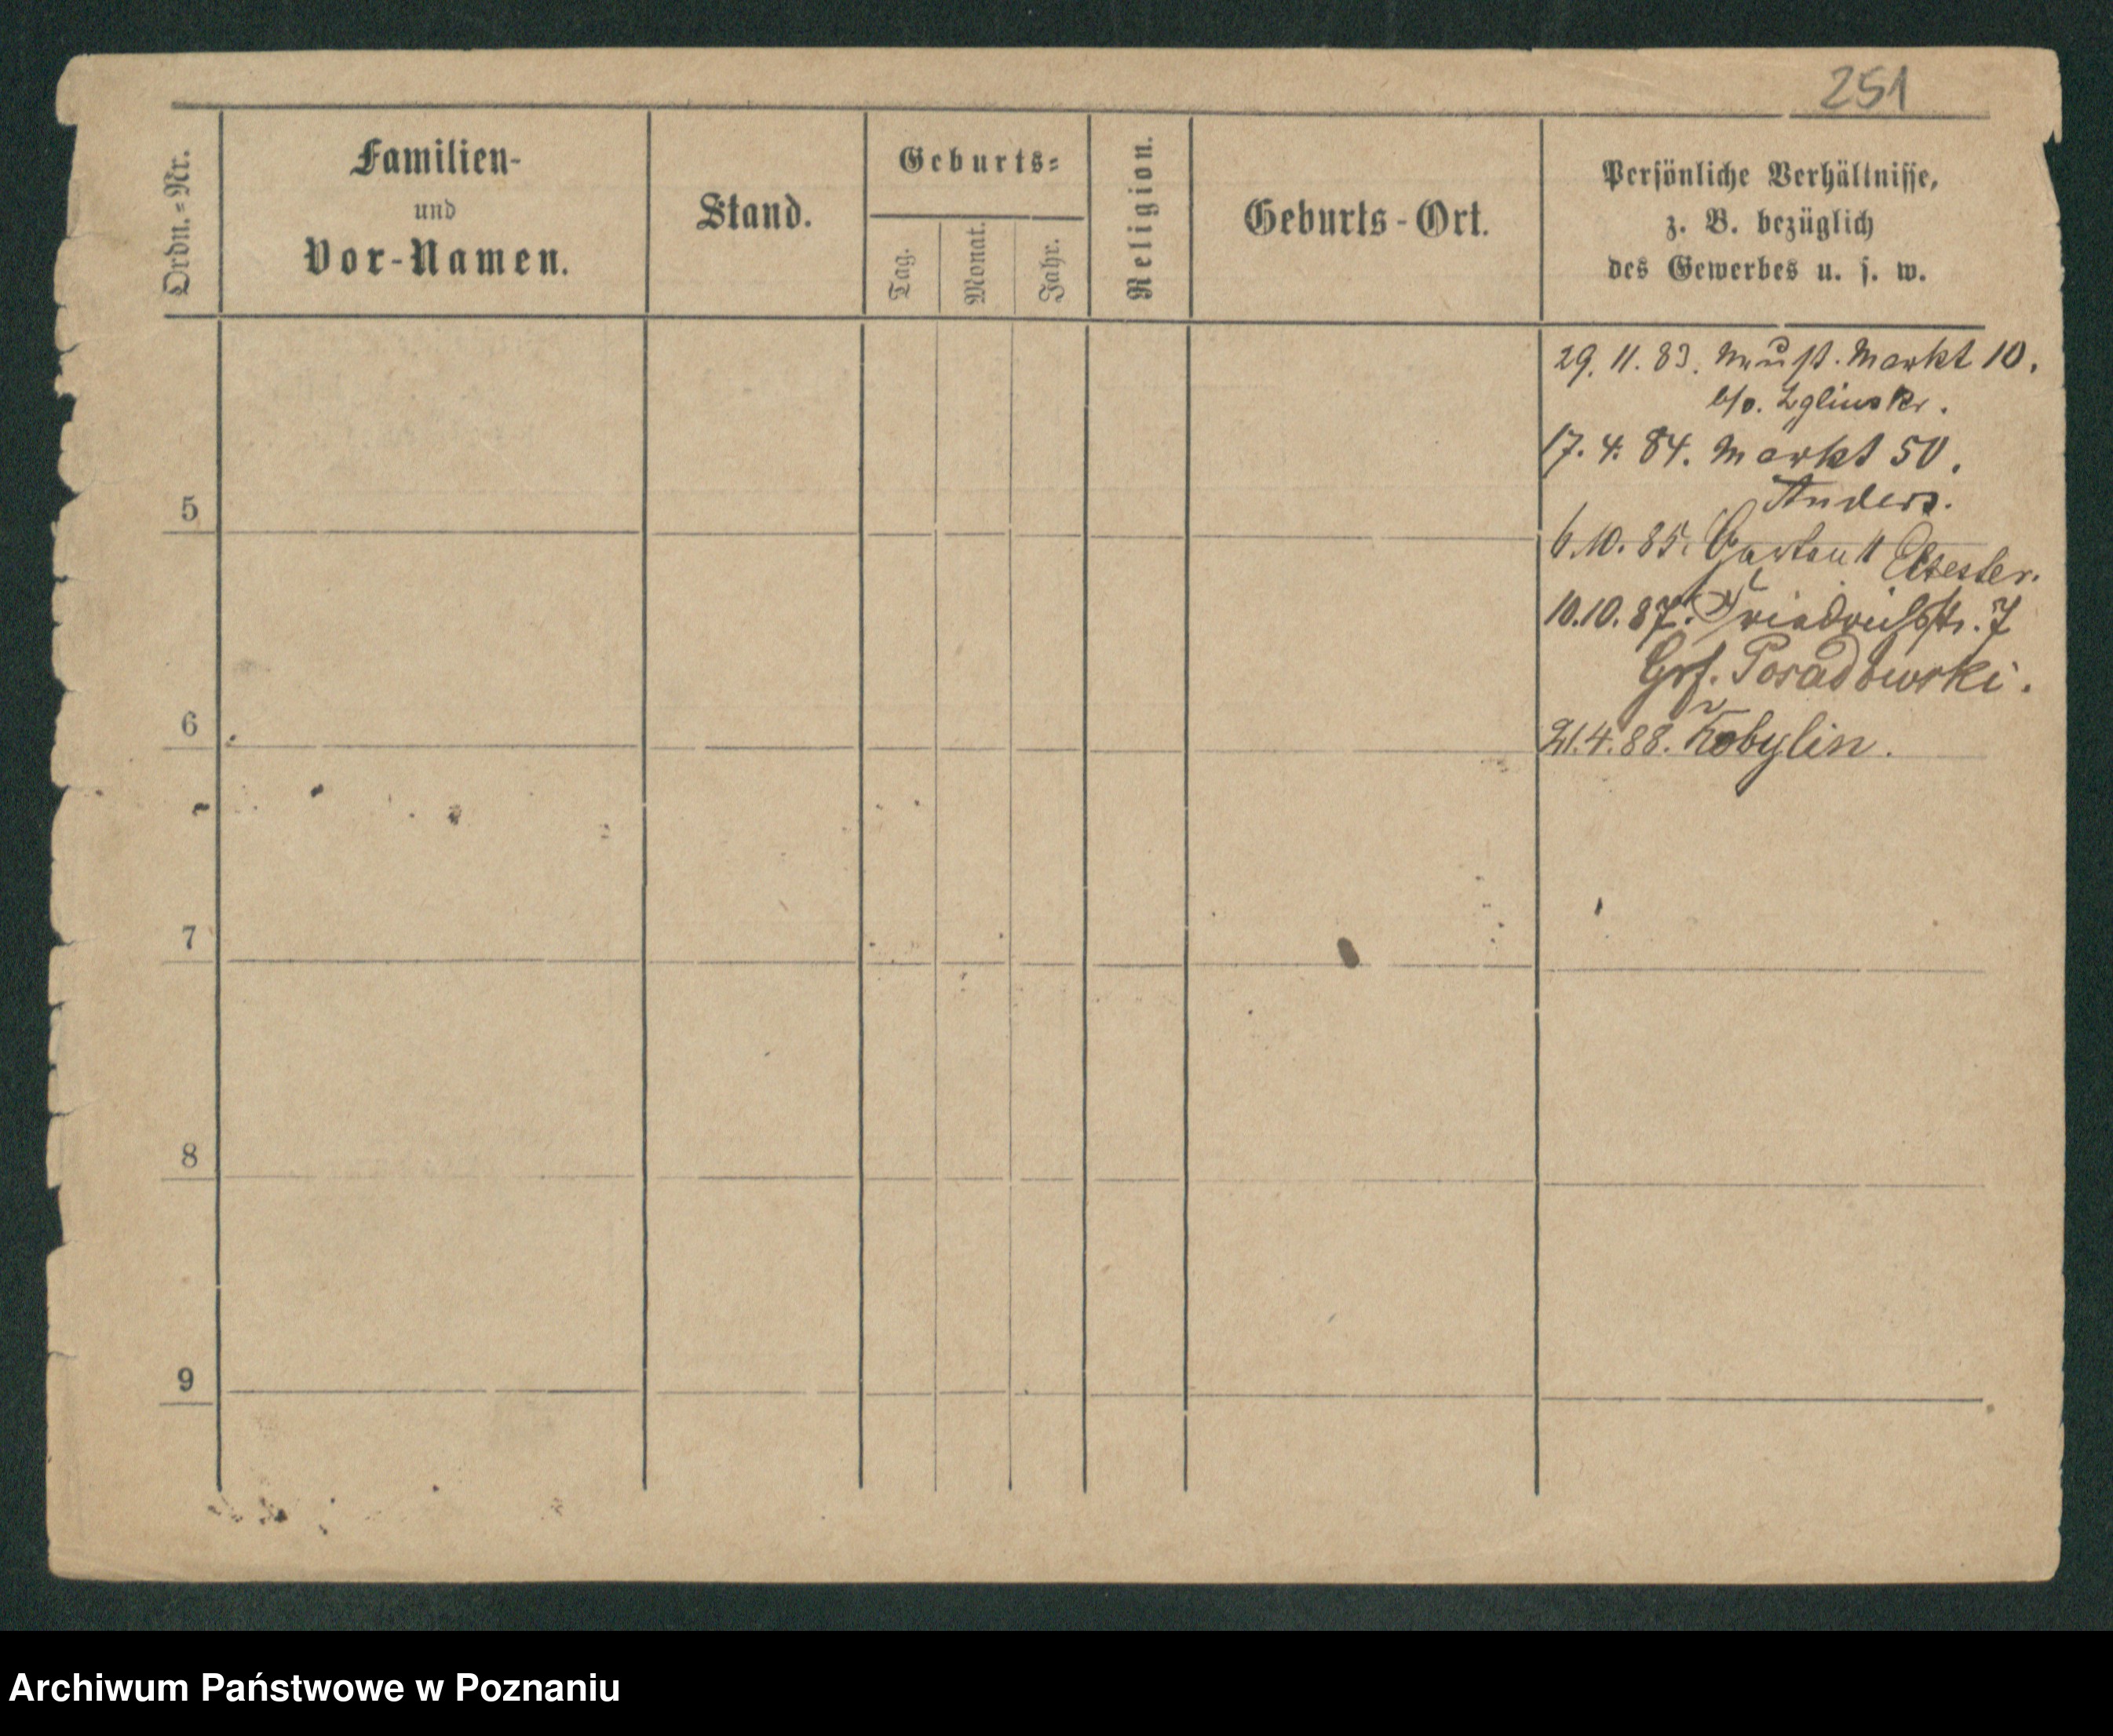 251
Ordn.=Nr.
Familien-
und
Vor-Namen.
Stand.
Geburts=
Tag.
Monat.
Jahr.
Religion.
Geburts-Ort.
Persönliche Verhältnisse,
z. B. bezüglich
des Gewerbes u. s. w.
29. 11. 83. Neust. Markt 10.
b/o. Zglinski.
17. 4. 84. Markt 50.
Anders.
5
6. 10. 85.
10. 10. 87. Friedrichstr. 7
Grf. Posadowski.
6
21. 4. 88. Kobylin.
7
8
9
Archiwum Państwowe w Poznaniu